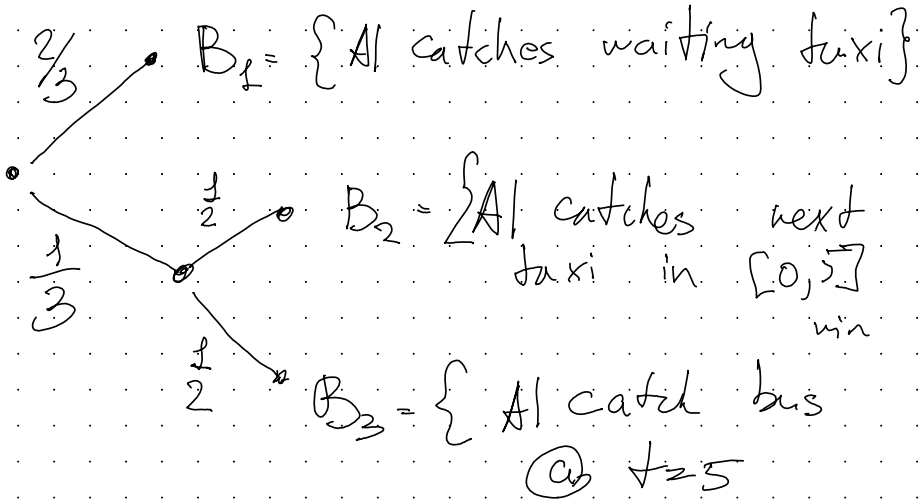 2/3
B₁ = {Al catches waiting taxi}
1/2
B₂ = {Al catches next
taxi in [0,5]
min
1/3
1/2
B₃ = { Al catch bus
@ t=5